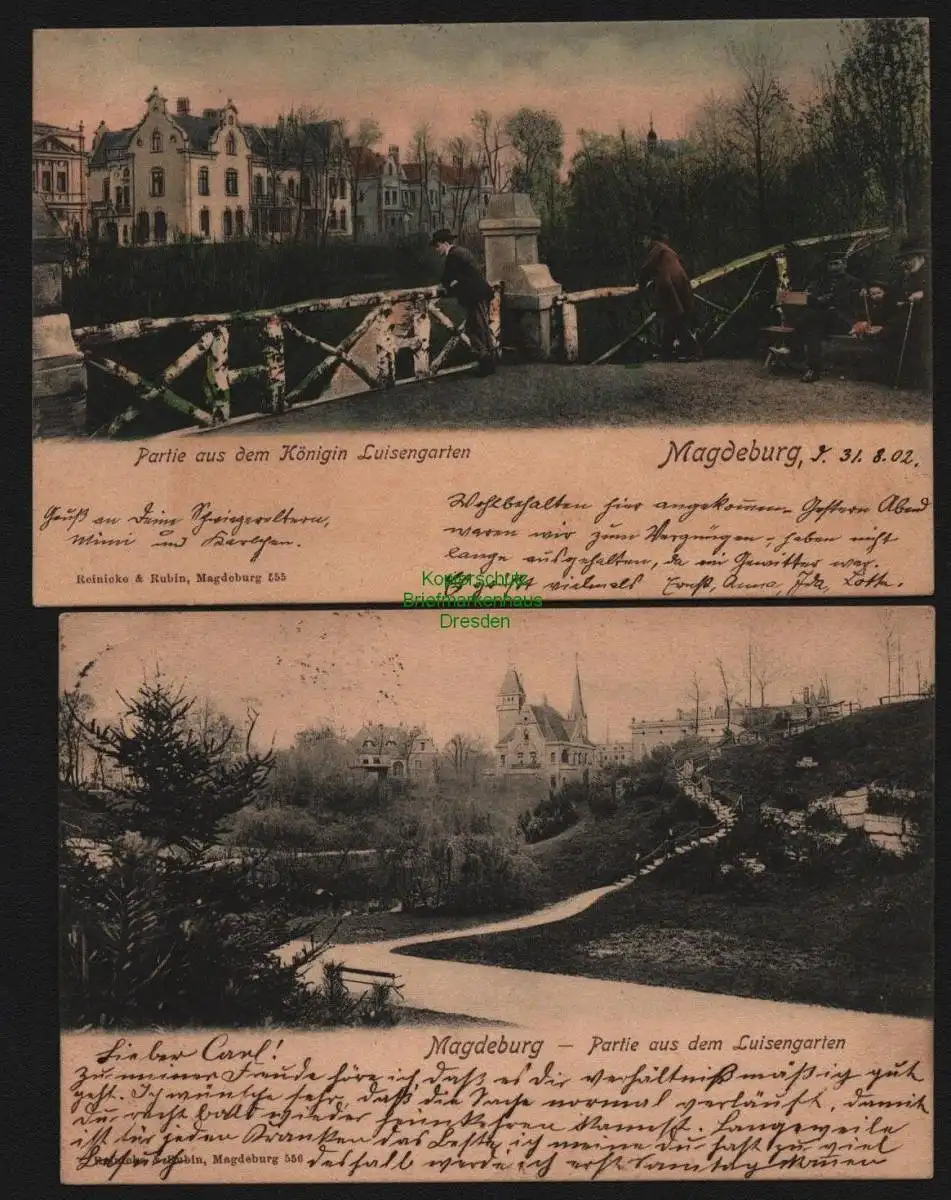 Partie aus dem Königin Luisengarten
Magdeburg, d. 31. 8. 02.
Gruß an Deine Schwiegereltern,
Mimi und Karlchen.
Wohlbehalten hier angekommen. Gestern Abend
waren wir zum Vergnügen, haben nicht
lange ausgehalten, da ein Gewitter war.
Es grüßt vielmals Ernst, Anna, Ida, Lotte.
Reinicke & Rubin, Magdeburg 555
Kopierschutz
Briefmarkenhaus
Dresden
Magdeburg – Partie aus dem Luisengarten
Lieber Carl!
Zu meiner Freude höre ich, daß es dir verhältnißmäßig gut
geht. Ich wünsche sehr, daß die Sache normal verläuft, damit
du recht bald wieder heimkehren kannst. Langeweile
ist für jeden Kranken das Beste, ich meine du hast zu viel
Besuch
deshalb werde ich erst Samstag kommen
Reinicke & Rubin, Magdeburg 556